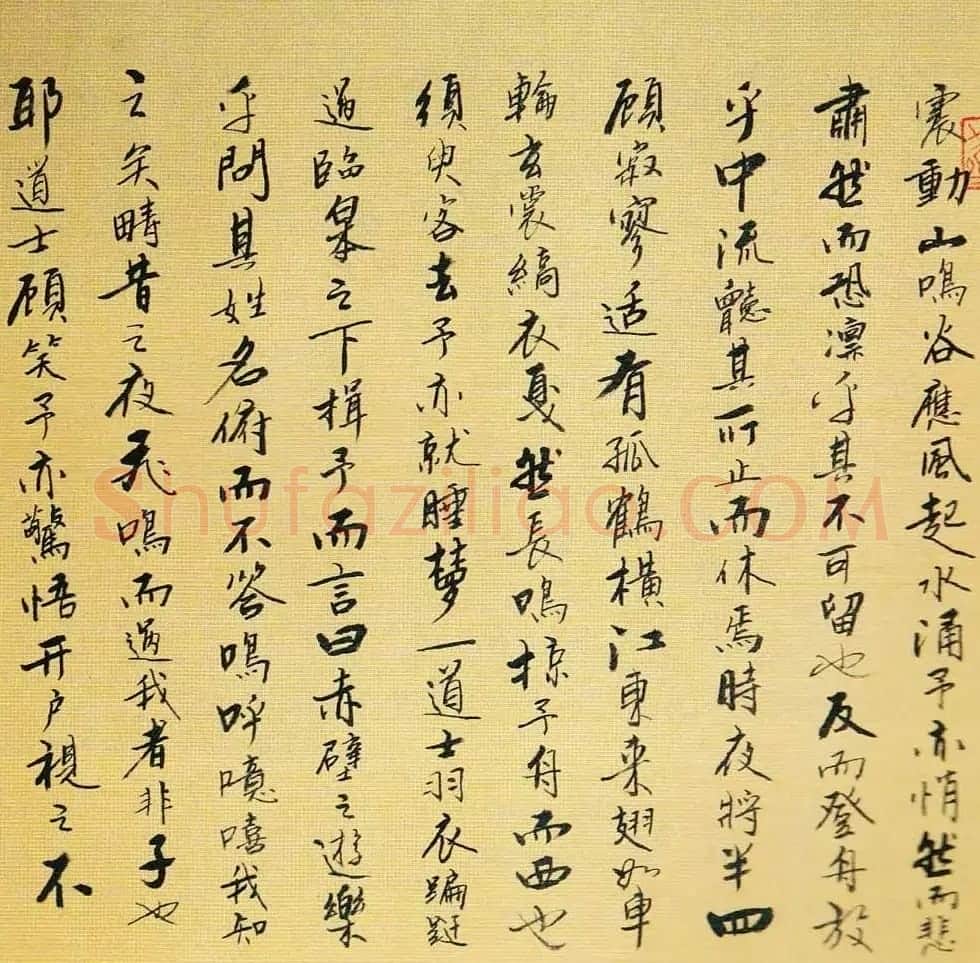 震動山鳴谷應風起水涌予亦悄然而悲
肅然而恐凛乎其不可留也反而登舟放
乎中流聽其所止而休焉時夜將半四
顧寂寥適有孤鶴橫江東來翅如車
輪玄裳縞衣戛然長鳴掠予舟而西也
須臾客去予亦就睡夢一道士羽衣蹁躚
過臨皋之下揖予而言曰赤壁之遊樂
乎問其姓名俯而不答嗚呼噫嘻我知
之矣疇昔之夜飛鳴而過我者非子也
耶道士顧笑予亦驚悟开戶視之不
Shufaziliao.COM